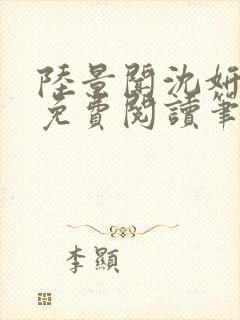 陸景聞沈妍
免費閱讀筆
李顯